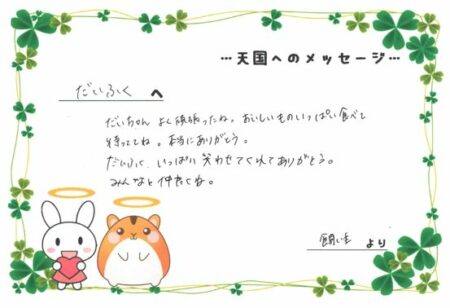 …天国へのメッセージ…
だいふく へ
だいちゃん よく頑張ったね。おいしいものいっぱい食べて
待っててね。本当にありがとう。
だいふく、いっぱい笑わせてくれてありがとう。
みんなと仲良くね。
飼い主 より